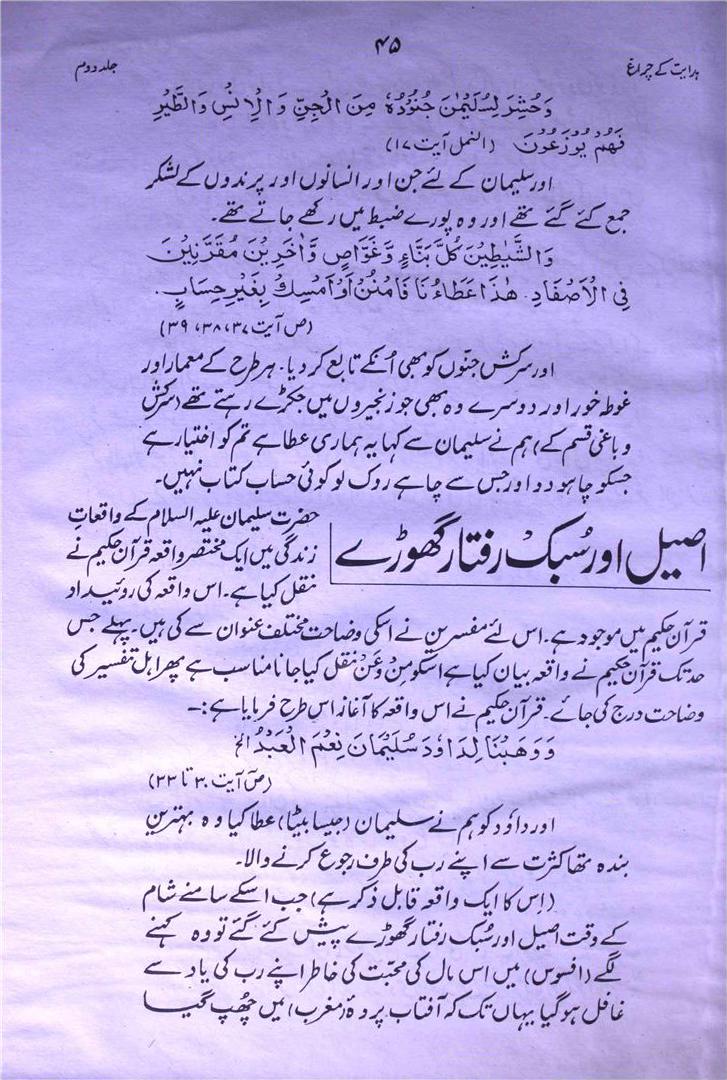 ہدایت کے چراغ
۴۵
جلد دوم
وَحُشِرَ لِسُلَیْمٰنَ جُنُوْدُہٗ مِنَ الْجِنِّ وَالْاِنْسِ وَالطَّیْرِ
فَہُمْ یُوْزَعُوْنَ (النمل آیت ۱۷)
اور سلیمان کے لئے جن اور انسانوں اور پرندوں کے لشکر
جمع کئے گئے تھے اور وہ پورے ضبط میں رکھے جاتے تھے۔
وَالشَّیٰطِیْنَ کُلَّ بَنَّاءٍ وَّغَوَّاصٍ وَّاٰخَرِیْنَ مُقَرَّنِیْنَ
فِی الْاَصْفَادِ۔ ھٰذَا عَطَاءُنَا فَامْنُنْ اَوْ اَمْسِکْ بِغَیْرِ حِسَابٍ۔
(ص آیت ۳۷،۳۸،۳۹)
اور سرکش جنّوں کو بھی اُنکے تابع کر دیا۔ ہر طرح کے معمار اور
غوطہ خور اور دوسرے وہ بھی جو زنجیروں میں جکڑے رہتے تھے (سرکش
و باغی قسم کے) ہم نے سلیمان سے کہا یہ ہماری عطا ہے تم کو اختیار ہے
جسکو چاہو دو اور جس سے چاہے روک لو کوئی حساب کتاب نہیں۔
اصیل اور سُبک رفتار گھوڑے
حضرت سلیمان علیہ السلام کے واقعاتِ
زندگی میں ایک مختصر واقعہ قرآن حکیم نے
نقل کیا ہے۔ اس واقعہ کی روئیداد
قرآن حکیم میں موجود ہے۔ اس لئے مفسرین نے اسکی وضاحت مختلف عنوان سے کی ہیں۔ پہلے جس
حد تک قرآن حکیم نے واقعہ بیان کیا ہے اسکو مِنْ وعَنْ نقل کیا جانا مناسب ہے پھر اہل تفسیر کی
وضاحت درج کی جائے۔ قرآن حکیم نے اس واقعہ کا آغاز اس طرح فرمایا ہے:۔
وَوَھَبْنَا لِدَاوٗدَ سُلَیْمَانَ نِعْمَ الْعَبْدُ الخ
(صٓ آیت ۳۰ تا ۳۳)
اور داؤد کو ہم نے سلیمان (جیسا بیٹا) عطا کیا وہ بہترین
بندہ تھا کثرت سے اپنے رب کی طرف رجوع کرنے والا۔
(اِس کا ایک واقعہ قابل ذکر ہے) جب اسکے سامنے شام
کے وقت اصیل اور سُبک رفتار گھوڑے پیش کئے گئے تو وہ کہنے
لگے (افسوس) میں اس مال کی محبّت کی خاطر اپنے رب کی یاد سے
غافل ہو گیا یہاں تک کہ آفتاب پردہ (مغرب) میں چُھپ گیا